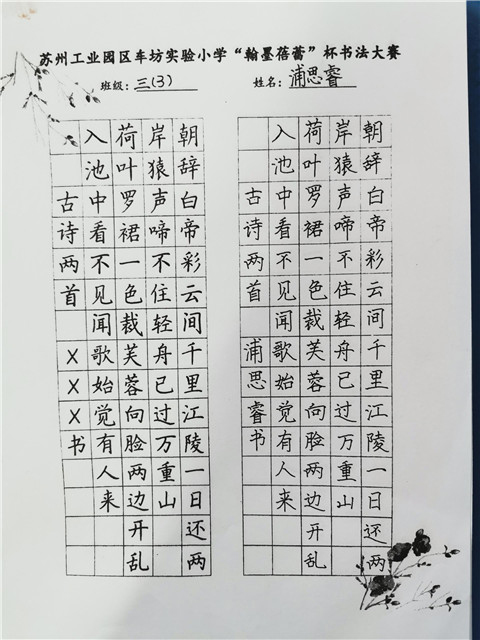 苏州工业园区车坊实验小学“翰墨蓓蕾”杯书法大赛
班级：三(3) 姓名：浦思睿
朝辞白帝彩云间千里江陵一日还两
岸猿声啼不住轻舟已过万重山
荷叶罗裙一色裁芙蓉向脸两边开乱
入池中看不见闻歌始觉有人来
古诗两首 XXX书
朝辞白帝彩云间千里江陵一日还两
岸猿声啼不住轻舟已过万重山
荷叶罗裙一色裁芙蓉向脸两边开乱
入池中看不见闻歌始觉有人来
古诗两首 浦思睿书